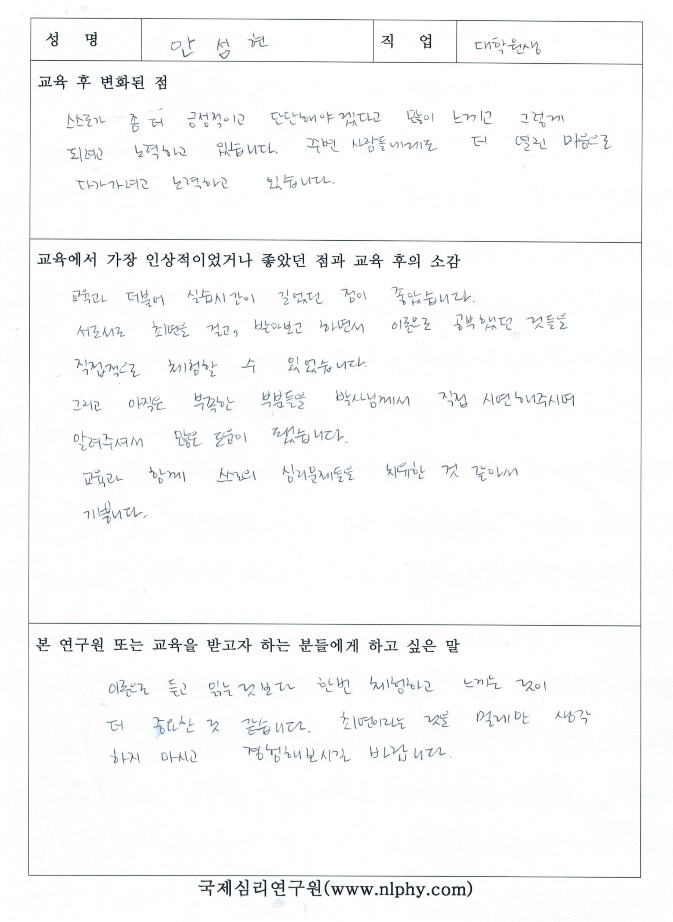 성 명 안섬현 직 업 대학원생
교육 후 변화된 점
스스로가 좀 더 긍정적이고 단단해야겠다고 많이 느끼고 그렇게
되려고 노력하고 있습니다. 주변 사람들에게도 더 열린 마음으로
다가가려고 노력하고 있습니다.
교육에서 가장 인상적이었거나 좋았던 점과 교육 후의 소감
교육과 더불어 실습시간이 길었던 점이 좋았습니다.
서로서로 최면을 걸고, 받아보고 하면서 이론으로 공부했던 것들을
직접적으로 체험할 수 있었습니다.
그리고 아직은 부족한 부분들을 박사님께서 직접 시연해주시며
알려주셔서 많은 도움이 됐습니다.
교육과 함께 스스로의 심리문제들을 치유한 것 같아서
기쁩니다.
본 연구원 또는 교육을 받고자 하는 분들에게 하고 싶은 말
이론으로 듣고 읽는것보다 한번 체험하고 느끼는 것이
더 중요한 것 같습니다. 최면이라는 것을 멀게만 생각
하지 마시고 경험해보시길 바랍니다.
국제심리연구원(www.nlphy.com)